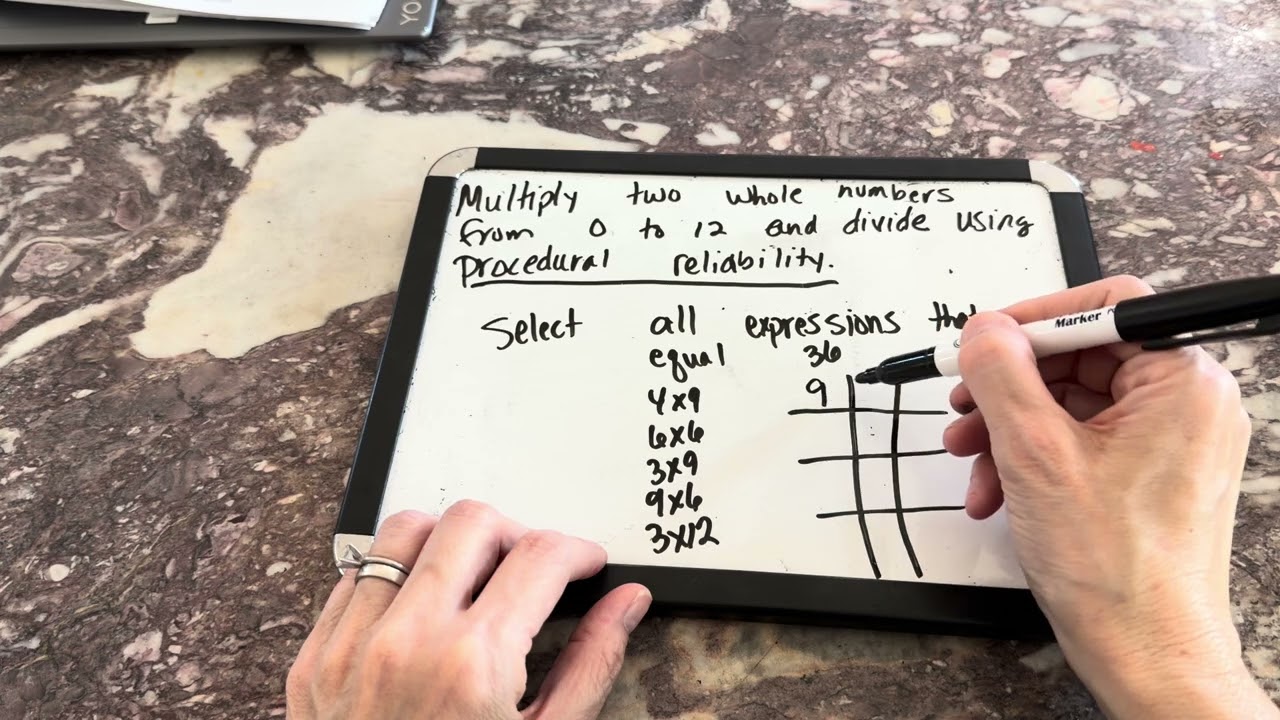 YO
Multiply two whole numbers
from 0 to 12 and divide using
procedural reliability.
Select all expressions that
equal 36
4x9
6x6
3x9
9x6
3x12
9
Marker